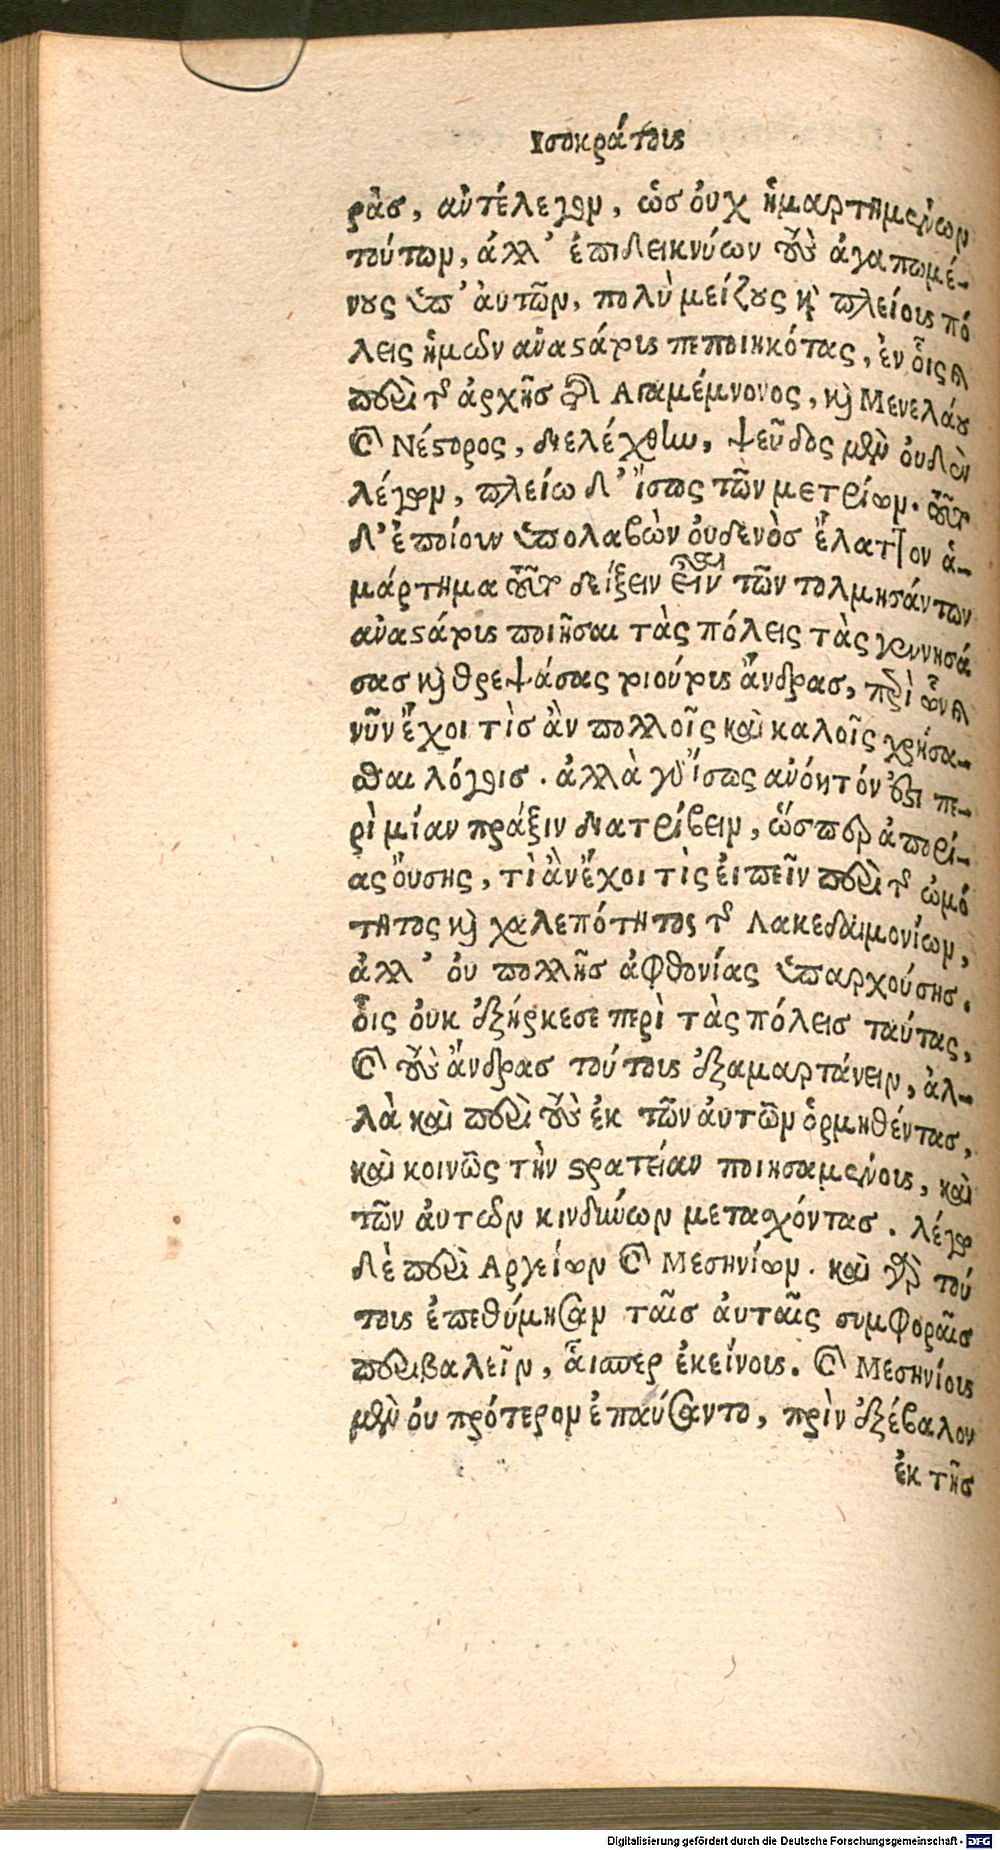 Ισοκράτους
ρὰσ, αὐτέλεγον, ὡσ ὀυχ ἡμαρτημένων
τούτων, ἀλλ' ἐπιδεικνύων τοὺς ἀγαπωμέ-
νους ὑπ' ἀυτῶν, πολὺ μείζους κỳ πλείους πό
λεις ἡμῶν ἀναστάτους πεποιηκότας, ἐν οἷς δὲ
περὶ τῆς ἀρχῆσ Αγαμέμνονος, κỳ Μενελάου
καὶ Νέστορος, διελέχθην, ψεῦδος μὲν ὀυδὲν
λέγων, πλείω δ' ἴσως τῶν μετρίων. τοῦτο
δ' ἐποίουν ὑπολαβὼν ὀυδενὸσ ἔλαττον ἁ-
μάρτημα τοῦτο δείξειν εἶναι τῶν τολμησάντων
ἀναστάτους ποιῆσαι τὰς πόλεις τὰς γεννησά
σασ κỳ θρεψάσας τοιούτους ἄνδρασ, περὶ ὧν δὲ
νῦν ἔχοι τὶσ ἂν πολλοῖς καὶ καλοῖς χρήσα-
σθαι λόγοισ. ἀλλὰ γὰρ ἴσως ἀνόητόν ἐστι πε-
ρὶ μίαν πράξιν διατρίβειν, ὥσπερ ἀπορί-
ας ὄυσης, τὶ ἂν ἔχοι τὶς ἐιπεῖν περὶ τῆς ὠμό
τητος κỳ χαλεπότητος τῆς Λακεδαιμονίων,
ἀλλ' ὀυ πολλῆσ ἀφθονίας ὑπαρχούσησ.
ὅις ὀυκ ἐξήρκεσε περὶ τὰς πόλεισ ταύτας,
καὶ τοὺς ἄνδρασ τούτους ἐξαμαρτάνειν, ἀλ-
λὰ καὶ περὶ τοὺς ἐκ τῶν ἀυτῶν ὁρμηθέντασ,
καὶ κοινῶς τὴν στρατείαν ποιησαμένους, καὶ
τῶν ἀυτῶν κινδύνων μετασχόντασ. λέγω
δὲ περὶ Αργείων καὶ Μεσηνίων. καὶ γὰρ τού
τους ἐπεθύμησαν ταῖσ ἀυταῖς συμφοραῖσ
περιβαλεῖν, ἅισπερ ἐκείνους. καὶ Μεσηνίους
μὲν ὀυ πρότερον ἐπαύσαντο, πρὶν ἐξέβαλον
ἐκ τῆσ
Digitalisierung gefördert durch die Deutsche Forschungsgemeinschaft - DFG